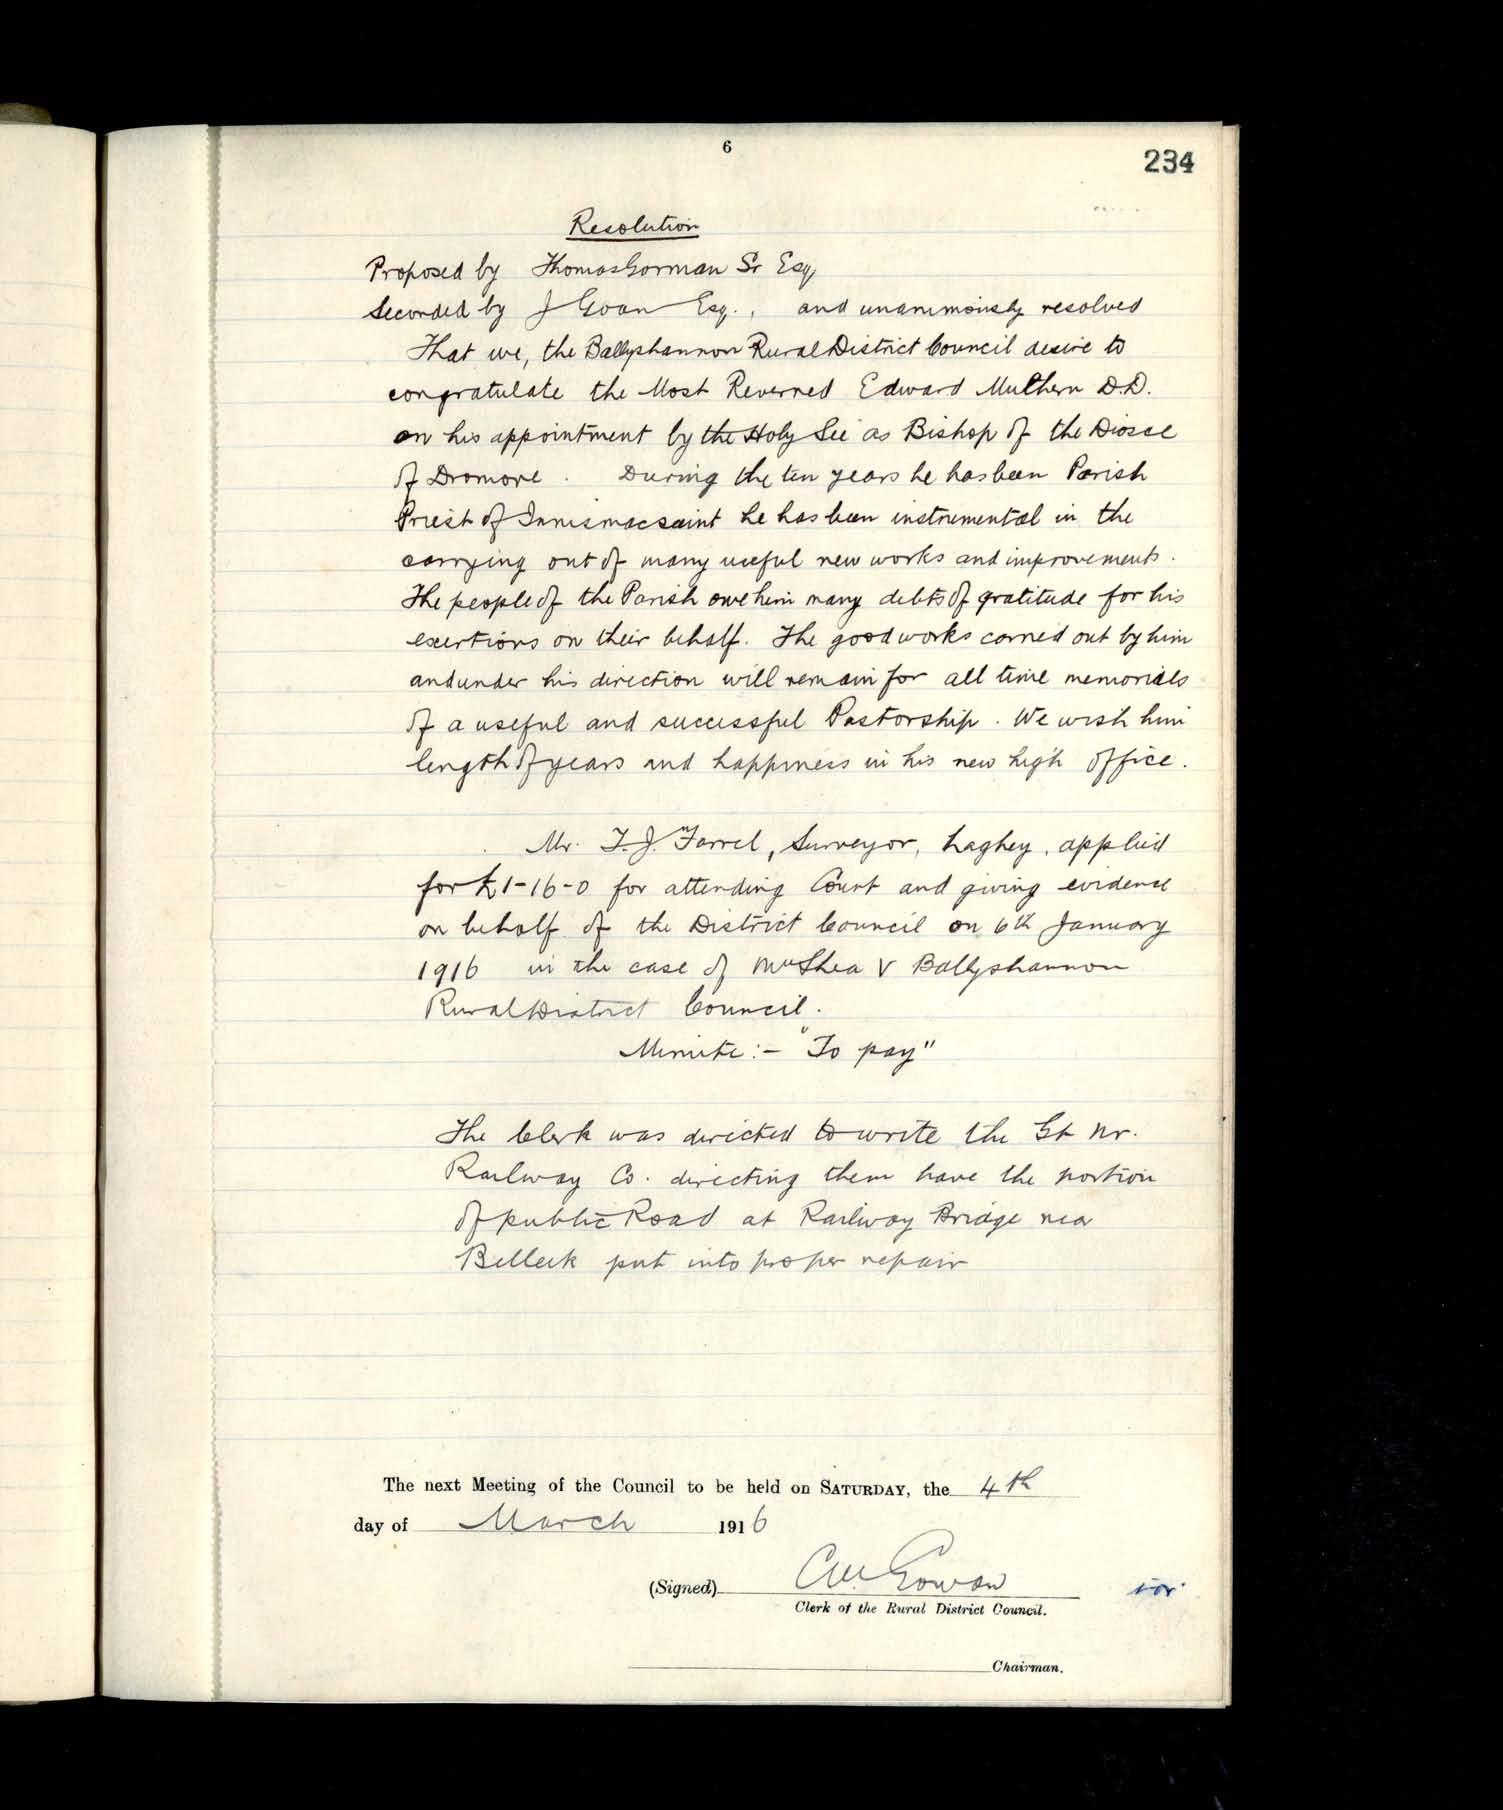 6
234
Resolution
Proposed by Thomas Gorman Sr Esq
Seconded by J Goan Esq., and unanimously resolved
That we, the Ballyshannon Rural District Council desire to
congratulate the Most Reverned Edward Mulhern D.D.
on his appointment by the Holy See as Bishop of the Diosce
of Dromore. During the ten years he has been Parish
Priest of Innismacsaint he has been instrumental in the
carrying out of many useful new works and improvements.
The people of the Parish owe him many debts of gratitude for his
exertions on their behalf. The good works carried out by him
and under his direction will remain for all time memorials
of a useful and successful Pastorship. We wish him
length of years and happiness in his new high office.
Mr. T. J. Farrel, Surveyor, Laghey, applied
for £1-16-0 for attending Court and giving evidence
on behalf of the District Council on 6th January
1916 in the case of McShea V Ballyshannon
Rural District Council.
Minute:- "To pay"
The Clerk was directed to write the Gt Nr.
Railway Co. directing them have the portion
of public Road at Railway Bridge near
Belleek put into proper repair
The next Meeting of the Council to be held on SATURDAY, the 4th
day of March 1916
(Signed) Gowan
Clerk of the Rural District Council.
Chairman.